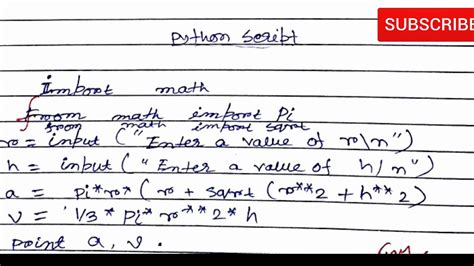 SUBSCRIBE
Python Script
Import math
From math import Pi
from math import sqrt
r = input ("Enter a value of r\n")
h = input ("Enter a value of h\n")
a = Pi*r*(r + sqrt(r**2 + h**2)
v = 1/3 * Pi * r**2 * h
print a, v.